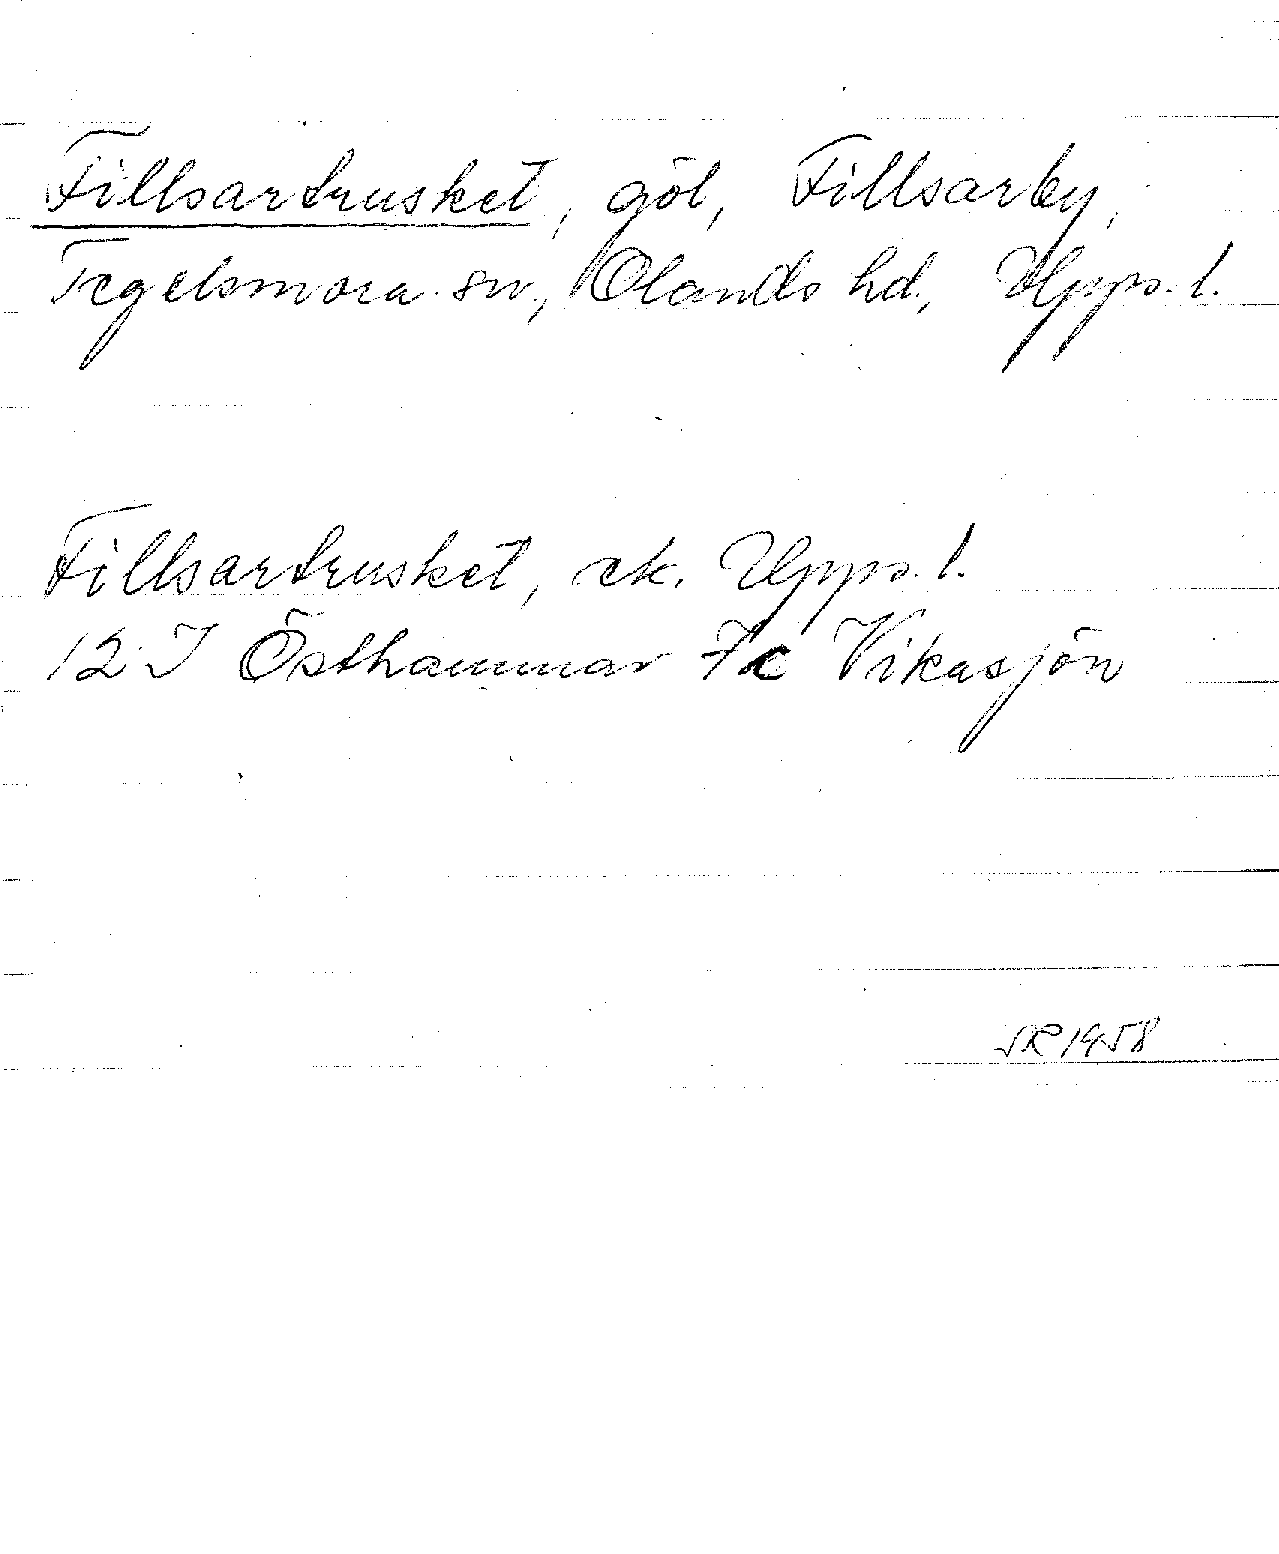 Fillsartrusket, göl, Fillsarby,
Tegelsmora sn, Olands hd, Upps. l.
Fillsartrusket, ek. Upps. l.
12 I Östhammar 7c Vikasjön
SR 1958